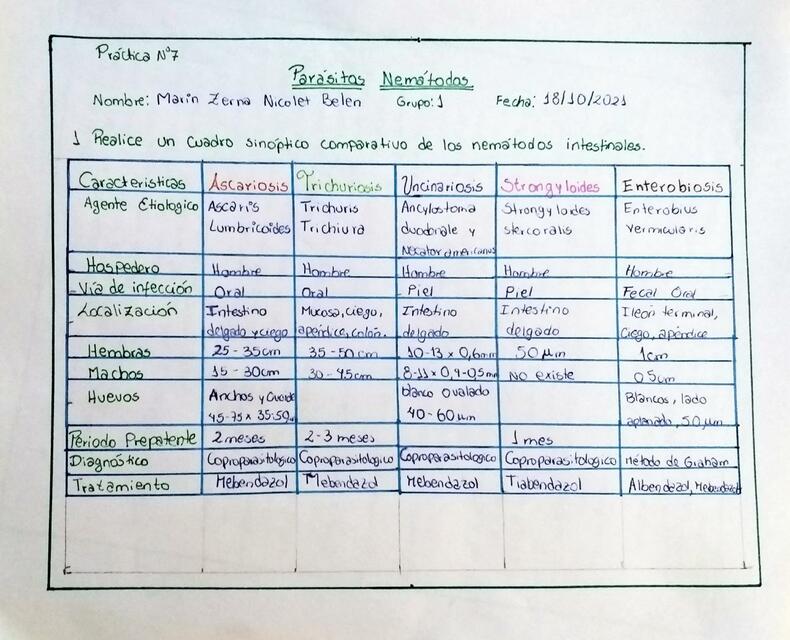 Práctica N°7
Parásitos Nemátodos
Nombre: Marin Zerna Nicolet Belen Grupo: 1 Fecha: 18/10/2021
1 Realice un cuadro sinóptico comparativo de los nemátodos intestinales.
Caracteristicas Ascariosis Trichuriosis Uncinariosis Strongyloides Enterobiosis
Agente Etiologico Ascaris Trichuris Ancylostoma Strongyloides Enterobius
Lumbricoides Trichiura duodenale y stercoralis vermicularis
Necator americanus
Hospedero Hombre Hombre Hombre Hombre Hombre
Vía de infección Oral Oral Piel Piel Fecal Oral
Localización Intestino Mucosa, ciego, Intestino Intestino Ileon terminal,
delgado y ciego apéndice, colon. delgado delgado Ciego, apéndice
Hembras 25-35cm 35-50cm 10-13 x 0,6mm 50 µm 1cm
Machos 15-30cm 30-45cm 8-11 x 0,4-0,5mm No existe 05cm
Huevos Anchos y blanco ovalado Blancos, lado
45-75 x 35-50 40-60µm aplanado, 50µm
Período Prepatente 2 meses 2-3 meses 1 mes
Diagnóstico Coproparasitologico Coproparasitologico Coproparasitologico Coproparasitologico método de Graham
Tratamiento Mebendazol Mebendazol Mebendazol Tiabendazol Albendazol, Mebendazol